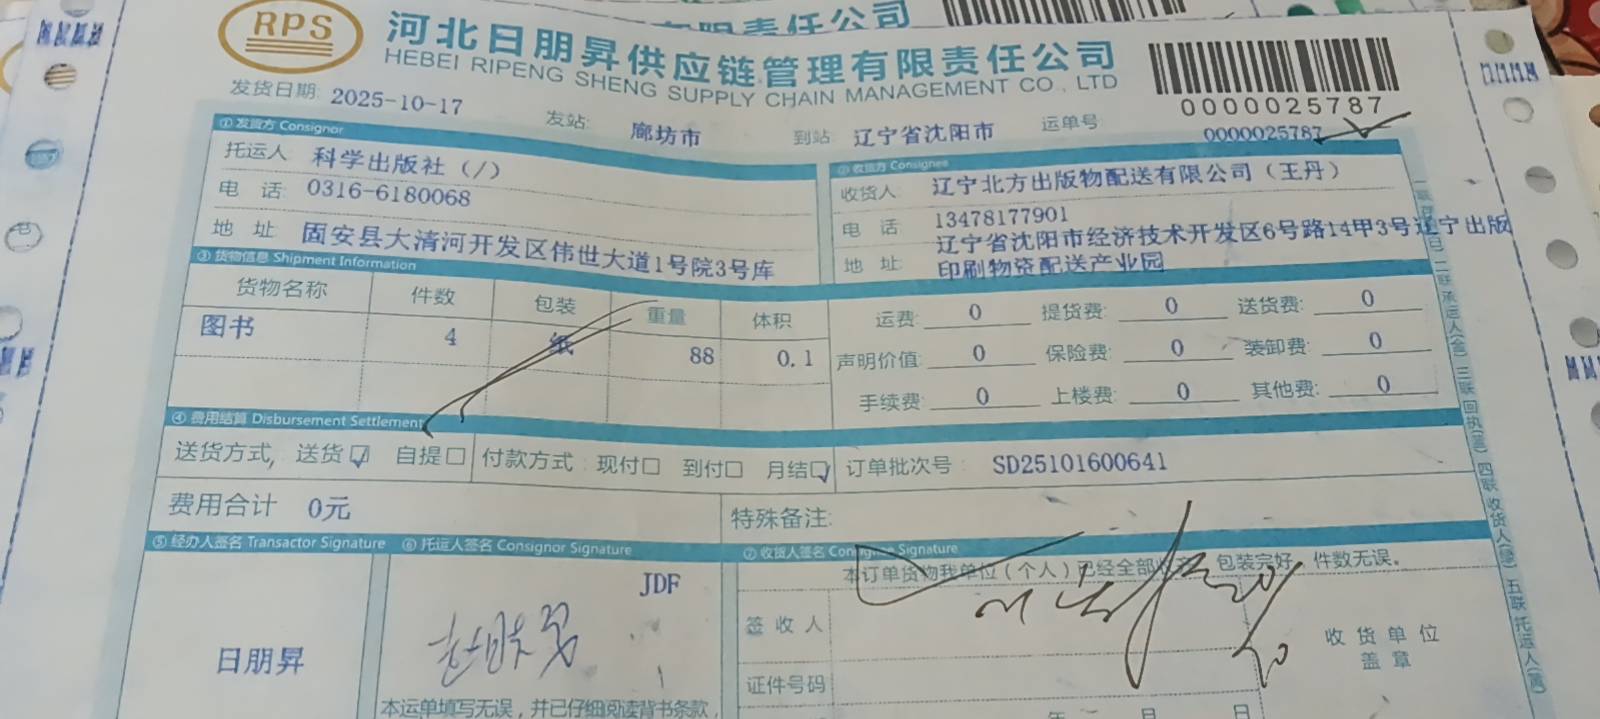 RPS
河北日朋昇供应链管理有限责任公司
HEBEI RIPENG SHENG SUPPLY CHAIN MANAGEMENT CO., LTD
0000025787
发货日期: 2025-10-17 发站: 廊坊市 到站: 辽宁省沈阳市 运单号 0000025787
①发货方 Consignor
托运人 科学出版社(/)
电 话: 0316-6180068
地 址: 固安县大清河开发区伟世大道1号院3号库
②收货方 Consignee
收货人: 辽宁北方出版物配送有限公司(王丹)
电 话: 13478177901
地 址: 辽宁省沈阳市经济技术开发区6号路14甲3号辽宁出版
印刷物资配送产业园
③货物信息 Shipment Information
货物名称 件数 包装 重量 体积
图书 4 纸 88 0.1
运费: 0 提货费: 0 送货费: 0
声明价值: 0 保险费: 0 装卸费: 0
手续费: 0 上楼费: 0 其他费: 0
④费用结算 Disbursement Settlement
送货方式, 送货☑ 自提☐ 付款方式: 现付☐ 到付☐ 月结☑ 订单批次号: SD25101600641
费用合计 0元 特殊备注:
⑤经办人签名 Transactor Signature
日朋昇
⑥托运人签名 Consignor Signature
JDF
本运单填写无误,并已仔细阅读背书条款,
⑦收货人签名 Consignee Signature
本订单货物我单位(个人)已经全部收 包装完好,件数无误。
签收人
收货单位
盖章
证件号码
年 月 日